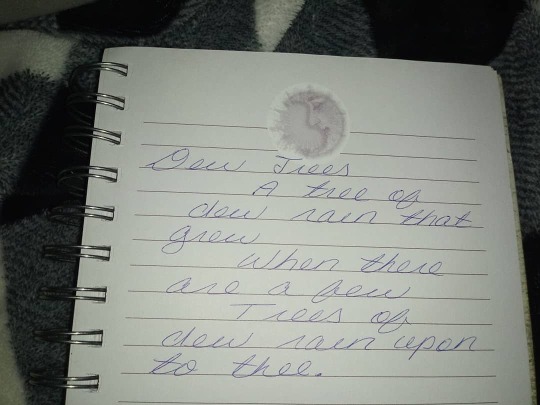 Dew Trees
A tree of
dew rain that
grew
When there
are a few
Trees of
dew rain upon
to thee.